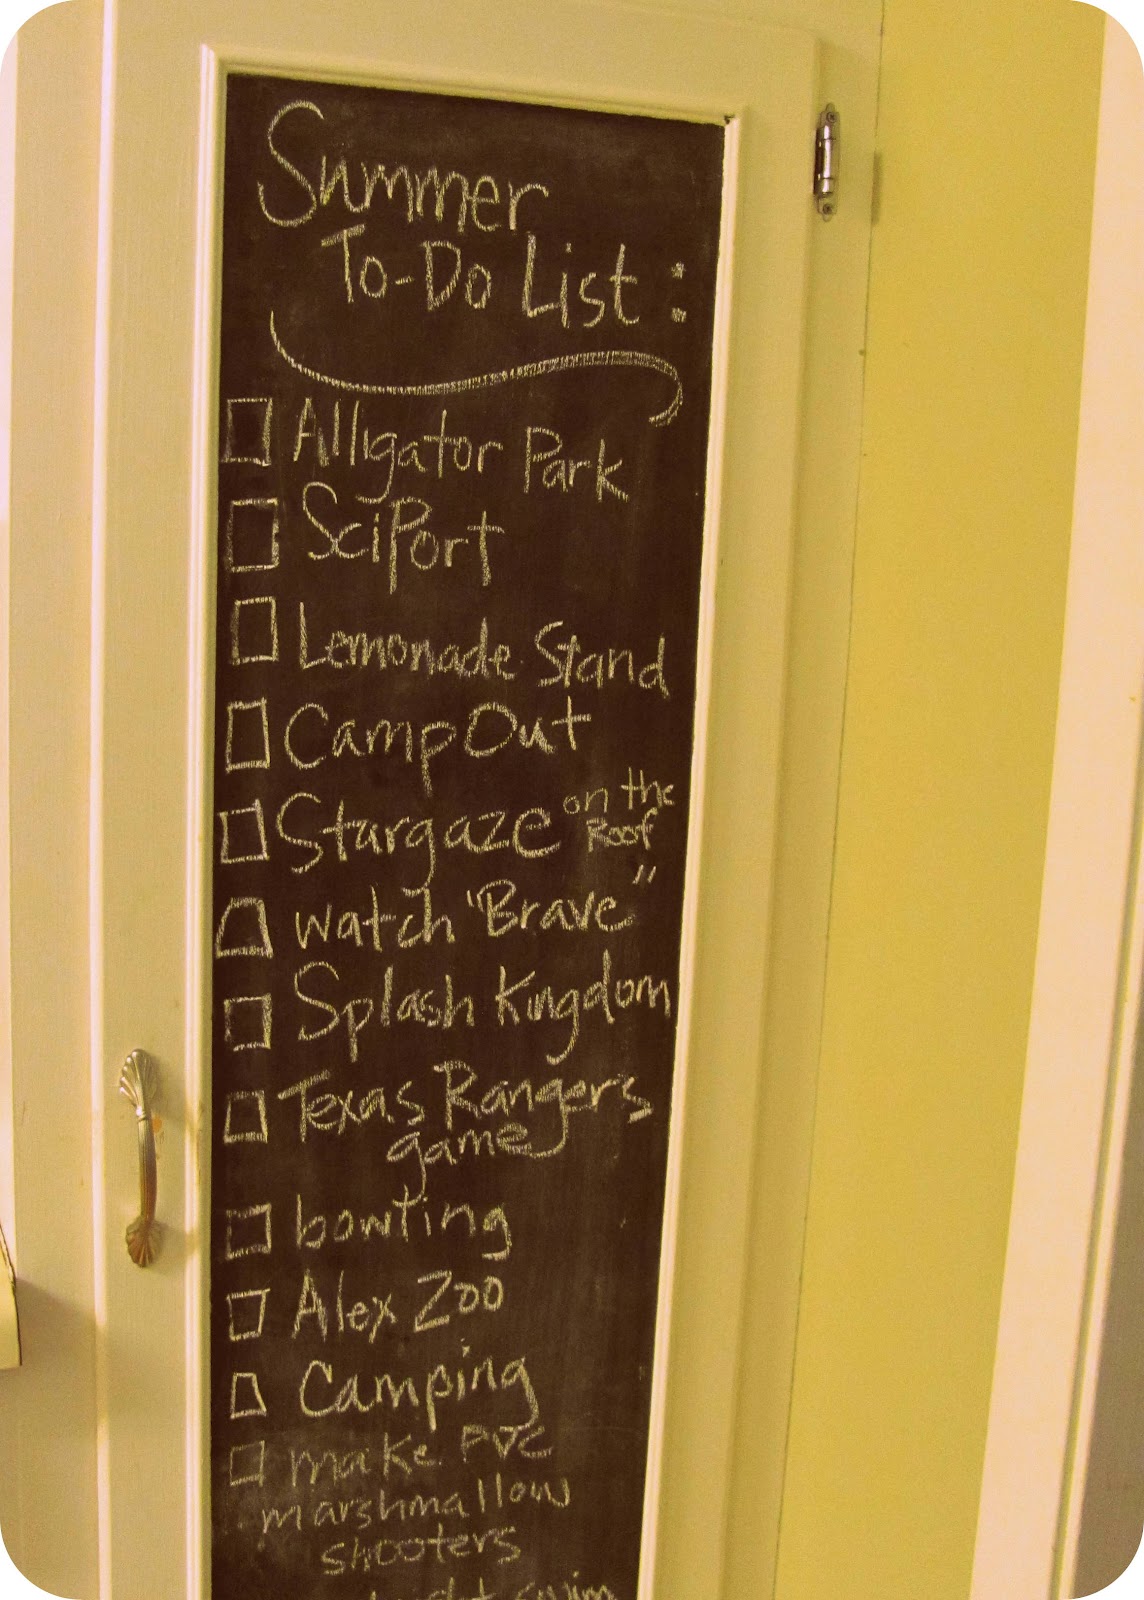 Summer
To-Do List:
Alligator Park
SciPort
Lemonade Stand
Camp Out
Stargaze on the
Roof
watch "Brave"
Splash Kingdom
Texas Rangers
game
bowling
Alex Zoo
Camping
make PVC
marshmallow
shooters
swim